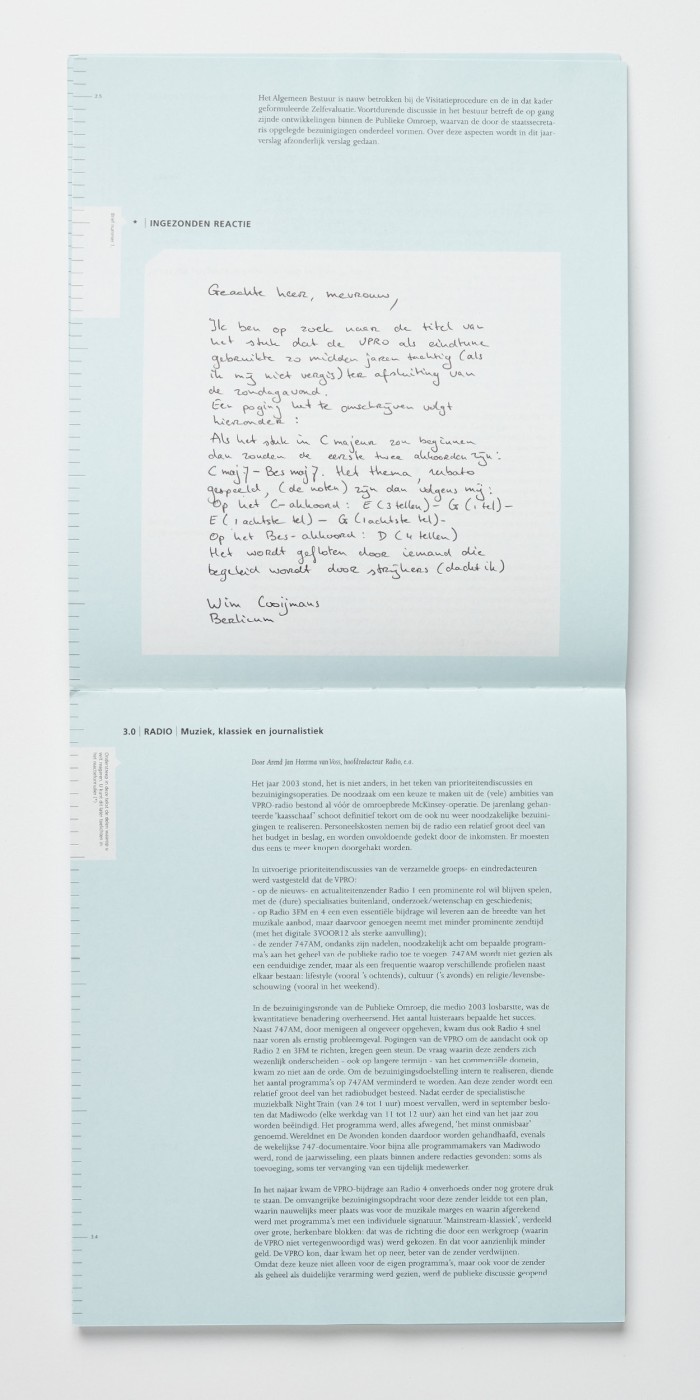 23
Het Algemeen Bestuur is nauw betrokken bij de Visitatieprocedure en de in dat kader
geformuleerde Zelfevaluatie. Voortdurende discussie in het bestuur betreft de op gang
zijnde ontwikkelingen binnen de Publieke Omroep, waarvan de door de staatssecreta-
ris opgelegde bezuinigingen onderdeel vormen. Over deze aspecten wordt in dit jaar-
verslag afzonderlijk verslag gedaan.
* | INGEZONDEN REACTIE
Geachte heer, mevrouw,
Ik ben op zoek naar de titel van
het stuk dat de VPRO als eindtune
gebruikte zo midden jaren tachtig (als
ik mij niet vergis) ter afsluiting van
de zondagavond.
Een poging het te omschrijven volgt
hieronder :
Als het stuk in C majeur zou beginnen
dan zouden de eerste twee akkoorden zijn:
C maj7 - Bes maj7. Het thema, rubato
gespeeld, (de noten) zijn dan volgens mij:
Op het C-akkoord: E (3 tellen) - G (1 tel) -
E (1 achtste tel) - G (1 achtste tel) -
Op het Bes-akkoord: D (4 tellen)
Het wordt gefloten door iemand die
begeleid wordt door strijkers (dacht ik)
Wim Cooijmans
Berlicum
3.0 | RADIO | Muziek, klassiek en journalistiek
Door Arend Jan Heerma van Voss, hoofdredacteur Radio, e.a.
Het jaar 2003 stond, het is niet anders, in het teken van prioriteitendiscussies en
bezuinigingsoperaties. De noodzaak om een keuze te maken uit de (vele) ambities van
VPRO-radio bestond al vóór de omroepbrede McKinsey-operatie. De jarenlang gehan-
teerde 'kaasschaaf' schoot definitief tekort om de ook nu weer noodzakelijke bezuini-
gingen te realiseren. Personeelskosten nemen bij de radio een relatief groot deel van
het budget in beslag, en worden onvoldoende gedekt door de inkomsten. Er moesten
dus eens te meer knopen doorgehakt worden.
In uitvoerige prioriteitendiscussies van de verzamelde groeps- en eindredacteuren
werd vastgesteld dat de VPRO:
- op de nieuws- en actualiteitenzender Radio 1 een prominente rol wil blijven spelen,
met de (dure) specialisaties buitenland, onderzoek/wetenschap en geschiedenis;
- op Radio 3FM en 4 een even essentiële bijdrage wil leveren aan de breedte van het
muzikale aanbod, maar daarvoor genoegen neemt met minder prominente zendtijd
(met het digitale 3VOOR12 als sterke aanvulling);
- de zender 747AM, ondanks zijn nadelen, noodzakelijk acht om bepaalde program-
ma's aan het geheel van de publieke radio toe te voegen. 747AM wordt niet gezien als
een eenduidige zender, maar als een frequentie waarop verschillende profielen naast
elkaar bestaan: lifestyle (vooral 's ochtends), cultuur ('s avonds) en religie/levensbe-
schouwing (vooral in het weekend).
In de bezuinigingsronde van de Publieke Omroep, die medio 2003 losbarstte, was de
kwantitatieve benadering overheersend. Het aantal luisteraars bepaalde het succes.
Naast 747AM, door menigeen al ongeveer opgeheven, kwam dus ook Radio 4 snel
naar voren als ernstig probleemgeval. Pogingen van de VPRO om de aandacht ook op
Radio 2 en 3FM te richten, kregen geen steun. De vraag waarin deze zenders zich
wezenlijk onderscheiden - ook op langere termijn - van het commerciële domein,
kwam zo niet aan de orde. Om de bezuinigingsdoelstelling intern te realiseren, diende
het aantal programma's op 747AM verminderd te worden. Aan deze zender wordt een
relatief groot deel van het radiobudget besteed. Nadat eerder de specialistische
muziekbalk Night Train (van 24 tot 1 uur) moest vervallen, werd in september beslo-
ten dat Madiwodo (elke werkdag van 11 tot 12 uur) aan het eind van het jaar zou
worden beëindigd. Het programma werd, alles afwegend, 'het minst onmisbaar'
genoemd. Wereldnet en De Avonden konden daardoor worden gehandhaafd, evenals
de wekelijkse 747-documentaire. Voor bijna alle programmamakers van Madiwodo
werd, rond de jaarwisseling, een plaats binnen andere redacties gevonden: soms als
toevoeging, soms ter vervanging van een tijdelijk medewerker.
In het najaar kwam de VPRO-bijdrage aan Radio 4 onverhoeds onder nog grotere druk
te staan. De omvangrijke bezuinigingsopdracht voor deze zender leidde tot een plan,
waarin nauwelijks meer plaats was voor de muzikale marges en waarin afgerekend
werd met programma's met een individuele signatuur. 'Mainstream-klassiek', verdeeld
over grote, herkenbare blokken: dat was de richting die door een werkgroep (waarin
de VPRO niet vertegenwoordigd was) werd gekozen. En dat voor aanzienlijk minder
geld. De VPRO kon, daar kwam het op neer, beter van de zender verdwijnen.
Omdat deze keuze niet alleen voor de eigen programma's, maar ook voor de zender
als geheel als duidelijke verarming werd gezien, werd de publieke discussie geopend
24